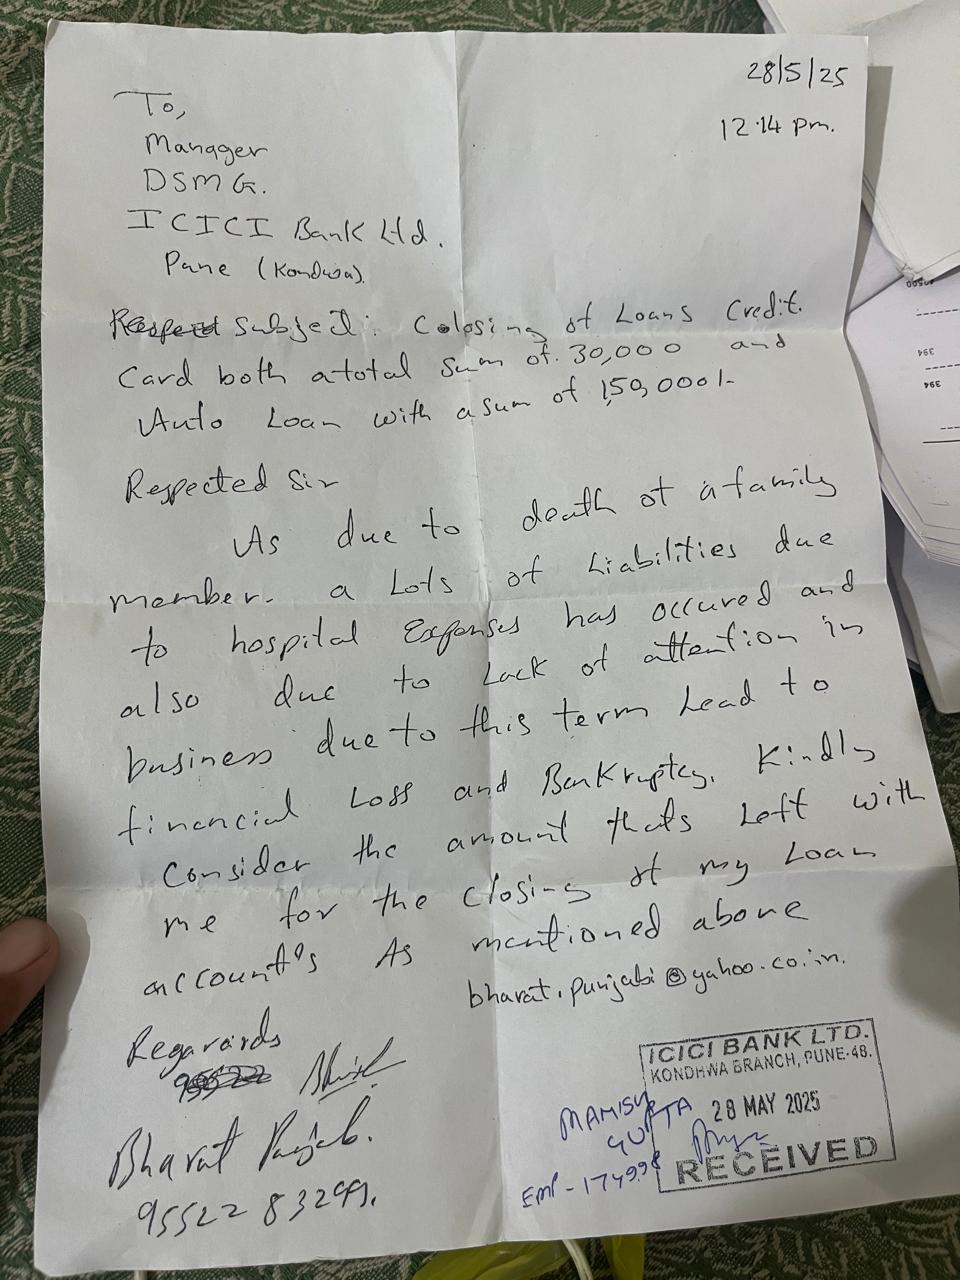 28/5/25
12.14 pm.
To,
Manager
DSMG.
ICICI Bank Ltd.
Pune (Kondwa).
Subject: Colosing of Loans Credit.
Card both a total sum of. 30,000 and
Auto Loan with a sum of 1,50,000/-
Respected Sir
As due to death of a family
member. a Lots of Liabilities due
to hospital Expenses has occured and
also due to Lack of attention in
business due to this term Lead to
financial Loss and Bankruptcy. Kindly
Consider the amount thats Left with
me for the closing of my Loan
account's As mentioned above
bharat.punjabi@yahoo.co.in.
Regarards
Bharat Punjabi.
95522 83299.
ICICI BANK LTD.
KONDHWA BRANCH, PUNE-48.
28 MAY 2025
RECEIVED
MANISH
GUPTA
EMP-
394
394